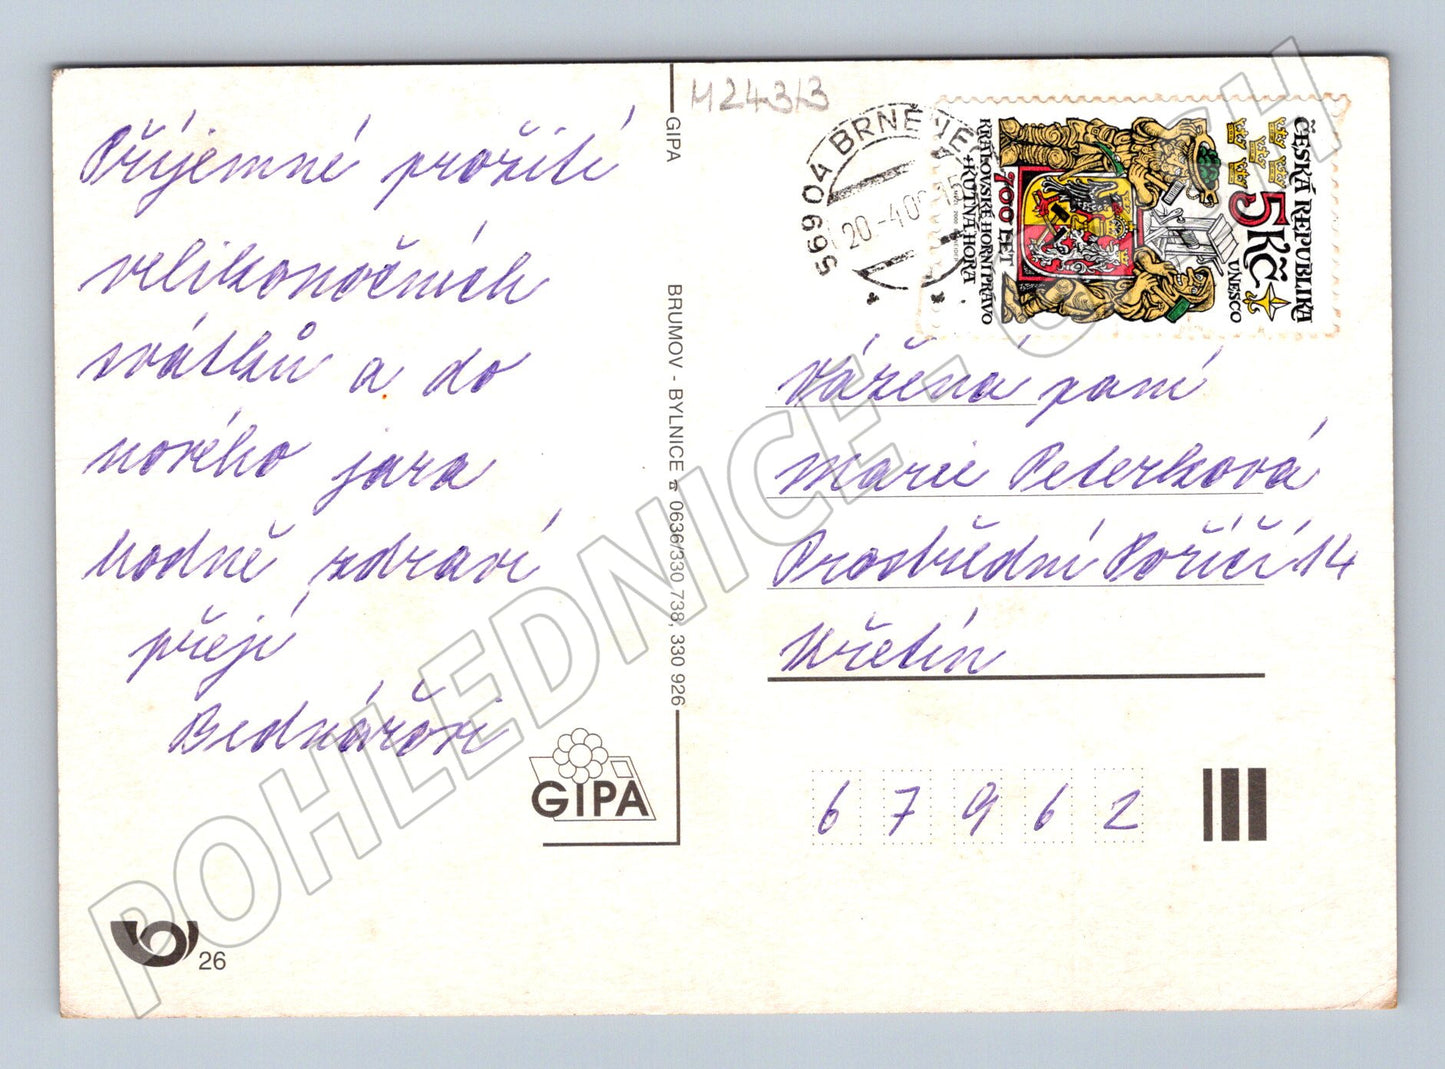 Příjemné prožití
velikonočních
svátků a do
nového jara
hodně zdraví
přejí
Bednářovi
GIPA
BRUMOV - BYLNICE ☎ 0636/330 738, 330 926
GIPA
26
M24313
569 04 BRNĚNEC
20.-4.00-15
ČESKÁ REPUBLIKA
5Kč
UNESCO
700 LET
KRÁLOVSKÉ HORNÍ PRÁVO
KUTNÁ HORA
Vážená paní
Marie Peterková
Prostřední Poříčí 14
Křetín
67962
POHLEDNICE - CASH